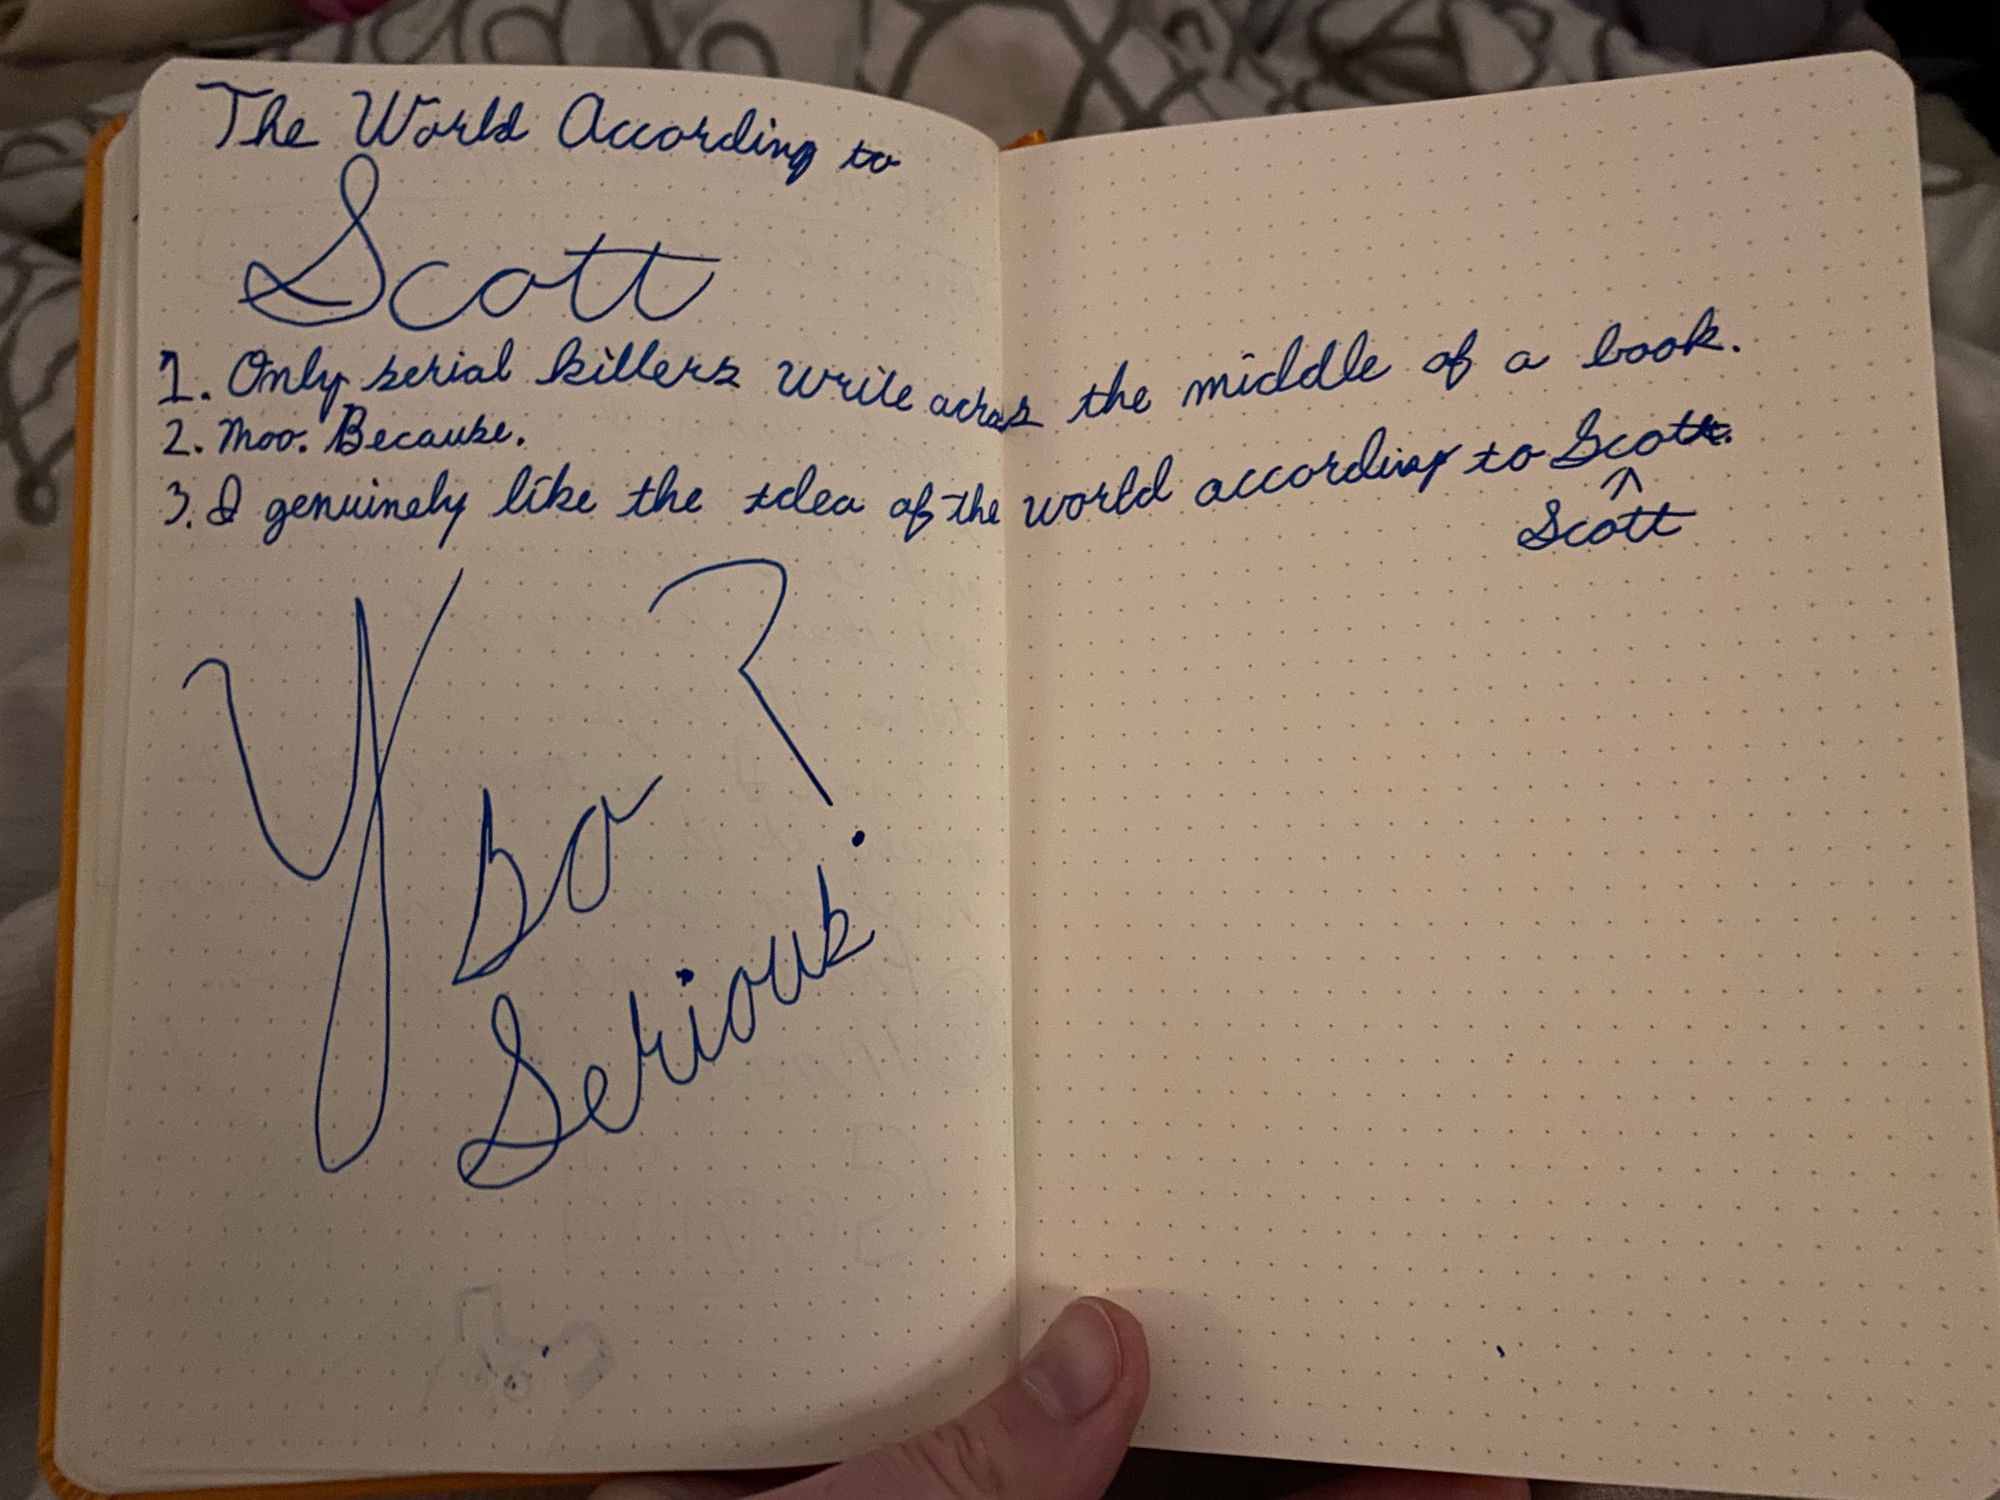 The World According to
Scott
1. Only serial killers write across the middle of a book.
2. Moo. Because.
3. I genuinely like the idea of the world according to Scott.
^
Scott
Y so
Serious?